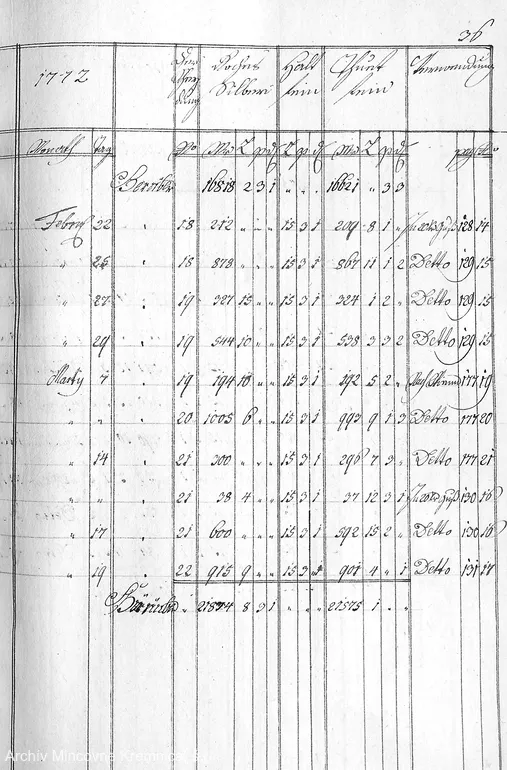 36
1772
Silber
Halt
fein
fein
Verwendung
Monath Tag No M L q d L q d M L q d pag No
16818 2 3 1 " " " 16621 " 3 3
Febru 22 " 18 212 " " " 15 3 1 209 8 1 " 128 14
" 25 " 18 878 " " " 15 3 1 867 11 1 2 Detto 129 15
" 27 " 19 327 15 " " 15 3 1 324 1 2 " Detto 129 15
" 29 " 19 544 10 " " 15 3 1 538 3 3 2 Detto 129 15
Marty 7 " 19 194 10 " " 15 3 1 192 5 2 " 177 19
" " " 20 1005 6 " " 15 3 1 993 9 1 3 Detto 177 20
" 14 " 21 300 " " " 15 3 1 296 7 3 " Detto 177 21
" " " 21 38 4 " " 15 3 1 37 12 3 1 130 16
" 17 " 21 600 " " " 15 3 1 592 15 2 " Detto 130 16
" 19 " 22 915 9 " " 15 3 1 901 4 " 1 Detto 131 17
8 3 1 " " " 21575 1 " "
Archiv Mincovne Kremnica